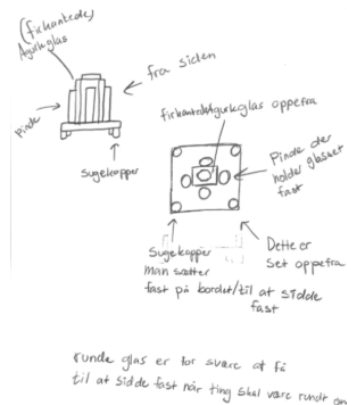 (firkantede)
Agurkglas
fra siden
Pinde
Sugekopper
firkantede Agurkglas oppefra
Pinde der
holder glasset
fast
Sugekopper
man sætter
fast på bordet/til at sidde
fast
Dette er
set oppefra
runde glas er for svære at få
til at sidde fast når ting skal være rundt om